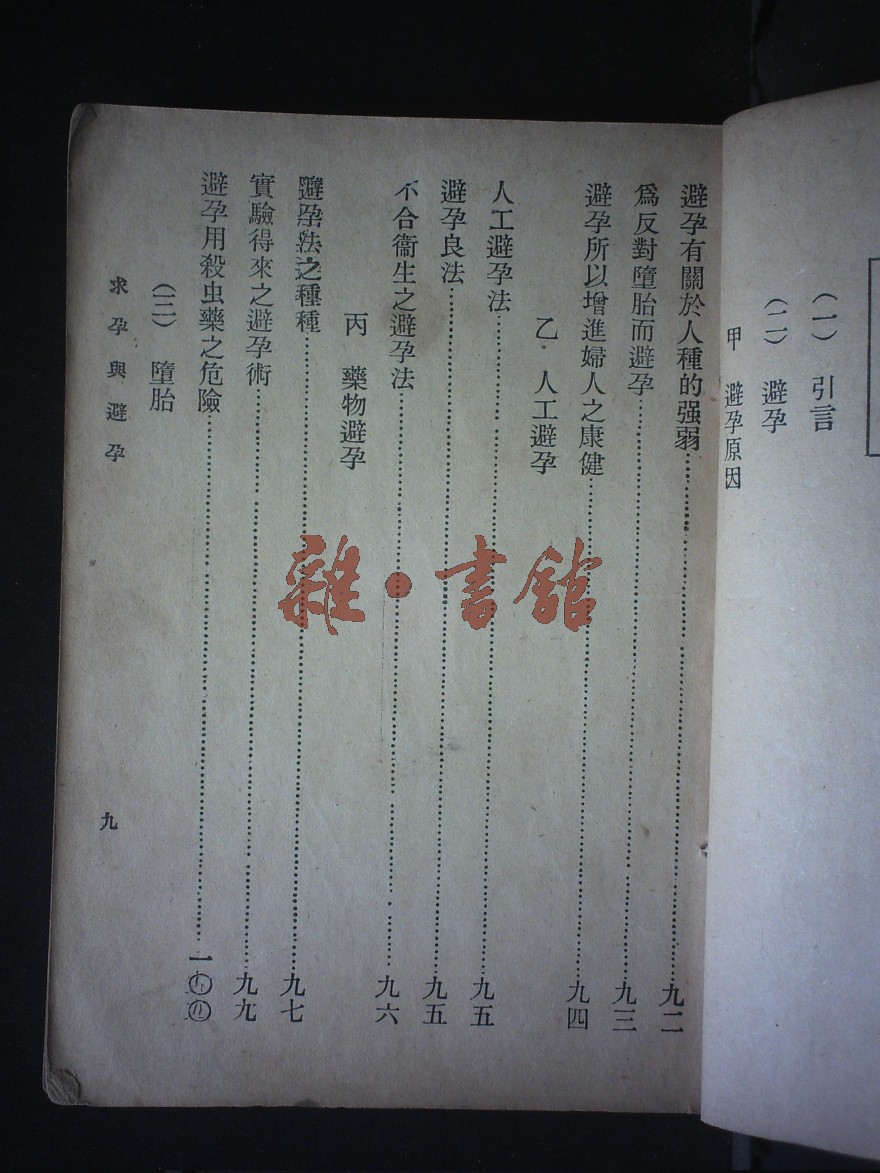 （一）　引言
（二）　避孕
甲　避孕原因
避孕有關於人種的强弱……九二
爲反對墮胎而避孕……九三
避孕所以增進婦人之康健……九四
乙．人工避孕
人工避孕法……九五
避孕良法……九五
不合衞生之避孕法……九六
丙　藥物避孕
避孕法之種種……九七
實驗得來之避孕術……九九
避孕用殺虫藥之危險……一
（三）　墮胎
求孕與避孕
九
雜·書館